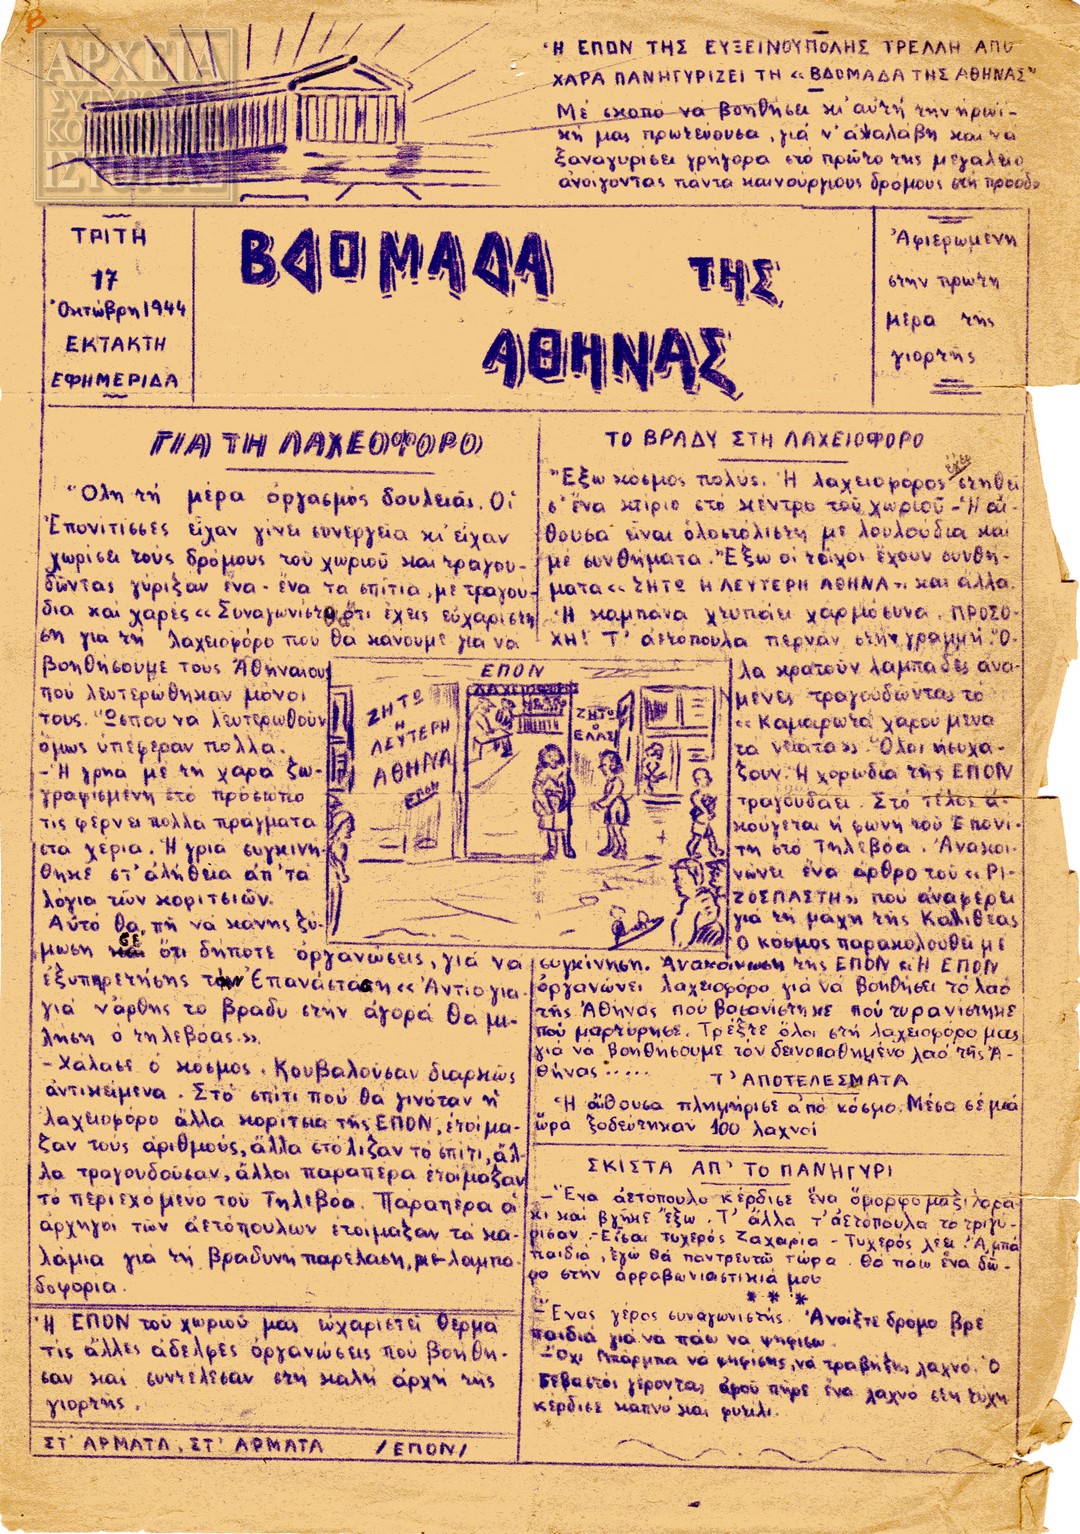 Β
ΑΡΧΕΙΑ
ΣΥΓΧΡΟΝΗΣ
ΚΟΙΝΩΝΙΚΗΣ
ΙΣΤΟΡΙΑΣ
Ἡ ΕΠΟΝ ΤΗΣ ΕΥΞΕΙΝΟΥΠΟΛΗΣ ΤΡΕΛΛΗ ΑΠΟ
ΧΑΡΑ ΠΑΝΗΓΥΡΙΖΕΙ ΤΗ «ΒΔΟΜΑΔΑ ΤΗΣ ΑΘΗΝΑΣ"
Μέ σκοπό νά βοηθήσει κι' αὐτή τήν ἡρωϊ-
κή μας πρωτεύουσα, γιά ν' ἀπαλάβη καί νά
ξαναγυρίσει γρήγορα στό πρῶτο της μεγαλείο
ἀνοίγοντας πάντα καινούργιους δρόμους στή πρόοδο
ΤΡΙΤΗ
17
Ὀκτώβρη 1944
ΕΚΤΑΚΤΗ
ΕΦΗΜΕΡΙΔΑ
ΒΔΟΜΑΔΑ ΤΗΣ
ΑΘΗΝΑΣ
Ἀφιερωμένη
στήν πρώτη
μέρα τής
γιορτής
ΓΙΑ ΤΗ ΛΑΧΕΟΦΟΡΟ
Ὅλη τή μέρα ὀργασμός δουλειάς. Οἱ
Ἐπονίτισσες εἶχαν γίνει συνεργεία κι' εἶχαν
χωρίσει τούς δρόμους τοῦ χωριοῦ καί τραγου-
δῶντας γύριζαν ἕνα - ἕνα τά σπίτια, με τραγού-
δια καί χαρές «Συναγωνιστ ὅτι ἔχεις εὐχαρίστη
ση γιά τή λαχειοφόρο πού θά κάνουμε γιά νά
βοηθήσουμε τούς Ἀθηναίους
πού λευτερώθηκαν μόνοι
τους. Ὥσπου νά λευτερωθοῦν
ὅμως ὑπέφεραν πολλά.
- Ἡ γρηά με τη χαρά ζω-
γραφισμένη στό πρόσωπο
τίς φέρνει πολλά πράγματα
στά χέρια. Ἡ γριά συγκινή-
θηκε στ' ἀλήθεια ἀπ' τά
λόγια τῶν κοριτσιῶν.
Αὐτό θά πῆ νά κάνης ζύ-
μωση σέ ὅτι δήποτε ὀργανώσεις, γιά νά
ἐξυπηρετήσης τήν Ἐπανάσταση «Ἀντίο γιαγιά
γιά νἄρθης το βράδυ στήν ἀγορά θά μι-
λήση ὁ τηλεβόας.»
- Χάλασε ὁ κόσμος. Κουβαλοῦσαν διαρκῶς
ἀντικείμενα. Στό σπίτι πού θά γινόταν ἡ
λαχειοφόρο ἄλλα κορίτσια τῆς ΕΠΟΝ, ἑτοίμα-
ζαν τούς ἀριθμούς, ἄλλα στόλιζαν τό σπίτι, ἄλ-
λα τραγουδοῦσαν, ἄλλοι παραπέρα ἑτοίμαζαν
τό περιεχόμενο τοῦ Τηλεβόα. Παραπέρα οἱ
ἀρχηγοί τῶν ἀετόπουλων ἑτοίμαζαν τά κα-
λάμια γιά τή βραδυνή παρέλαση, με λαμπα-
δοφορία.
Ἡ ΕΠΟΝ τοῦ χωριοῦ μας εὐχαριστεῖ θερμά
τίς ἄλλες ἀδελφές ὀργανώσεις πού βοήθη-
σαν καί συντέλεσαν στή καλή ἀρχή τῆς
γιορτής.
ΣΤ' ΑΡΜΑΤΑ, ΣΤ' ΑΡΜΑΤΑ /ΕΠΟΝ/
ΕΠΟΝ
ΛΑΧΕΙΟΦΟΡΟ
ΖΗΤΩ
Η
ΛΕΥΤΕΡΗ
ΑΘΗΝΑ
ΕΠΟΝ
ΖΗΤΩ
Ο
ΕΛΑΣ
ΤΟ ΒΡΑΔΥ ΣΤΗ ΛΑΧΕΙΟΦΟΡΟ
Ἔξω κόσμος πολύς. Ἡ λαχειοφόρος ἔχει στηθεῖ
σ' ἕνα κτίριο στό κέντρο τοῦ χωριοῦ - Ἡ αἴ-
θουσα εἶναι ὁλοστόλιστη μέ λουλούδια καί
μέ συνθήματα. Ἔξω οἱ τοίχοι ἔχουν συνθή-
ματα «ΖΗΤΩ Η ΛΕΥΤΕΡΗ ΑΘΗΝΑ» καί ἄλλα.
Ἡ καμπάνα χτυπάει χαρμόσυνα. ΠΡΟΣΟ-
ΧΗ! Τ' ἀετόπουλα περνάν στήν γραμμή. Ὅ-
λα κρατοῦν λαμπάδες ἀνα-
μένες τραγουδῶντας τό
«Καμαρωτά χαρούμενα
τά νειάτα» Ὅλοι ἡσυχά-
ζουν. Ἡ χορωδία τῆς ΕΠΟΝ
τραγουδάει. Στό τέλος ἀ-
κούγεται ἡ φωνή τοῦ Ἐπονί-
τη στό Τηλεβόα. Ἀνακοι-
νώνει ἕνα ἄρθρο τοῦ «ΡΙ-
ΖΟΣΠΑΣΤΗ» πού ἀναφέρει
γιά τή μάχη τῆς Καλιθέας
Ο κόσμος παρακολουθεῖ μέ
συγκίνηση. Ἀνακοίνωση τῆς ΕΠΟΝ «Ἡ ΕΠΟΝ
ὀργανώνει λαχειοφόρο γιά νά βοηθήσει τό λαό
τῆς Ἀθήνας πού βασανίστηκε πού τυρανίστηκε
πού μαρτύρησε. Τρέξτε ὅλοι στή λαχειοφόρο μας
γιά νά βοηθήσουμε τόν δεινοπαθημένο λαό τῆς Ἀ-
θήνας.....
Τ' ΑΠΟΤΕΛΕΣΜΑΤΑ
Ἡ αἴθουσα πλημμήρισε ἀπό κόσμο. Μέσα σέ μιά
ὥρα ξοδεύτηκαν 100 λαχνοί
ΣΚΙΣΤΑ ΑΠ' ΤΟ ΠΑΝΗΓΥΡΙ
- Ἕνα ἀετόπουλο κέρδισε ἕνα ὄμορφο μαξιλαρά-
κι καί βγῆκε ἔξω. Τ' ἄλλα τ' ἀετόπουλα τό τριγύ-
ρισαν. - Εἶσαι τυχερός Ζαχαρία - Τυχερός λέει! Ἀ, μπά
παιδιά, ἐγώ θά παντρευτῶ τώρα. Θά πάω ἕνα δῶ-
ρο στήν ἀρραβωνιαστικιά μου
* * *
- Ἕνας γέρος συναγωνιστής. Ἀνοίξτε δρόμο βρέ
παιδιά γιά νά πάω νά ψηφίσω.
- Ὄχι Μπάρμπα νά ψηφίσης, νά τραβήξης λαχνό. Ὁ
σεβαστός γέροντας ἀφοῦ πῆρε ἕνα λαχνό στή τύχη
κέρδισε καπνό καί φυτίλι.